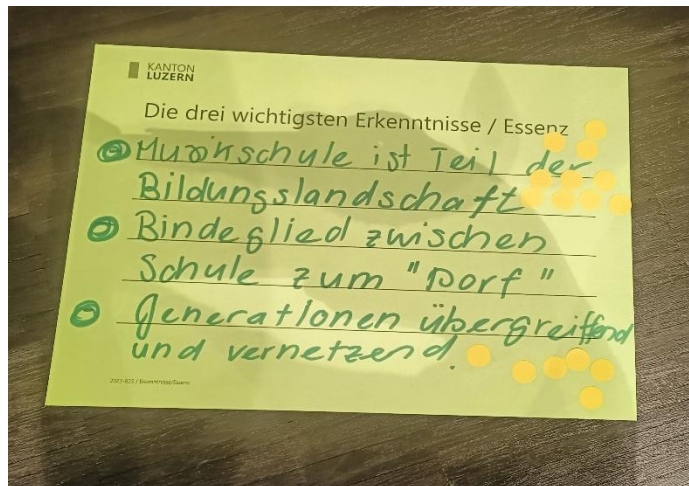 KANTON
LUZERN
Die drei wichtigsten Erkenntnisse / Essenz
Musikschule ist Teil der
Bildungslandschaft
Bindeglied zwischen
Schule zum "Dorf"
Generationen übergreiffend
und vernetzend.